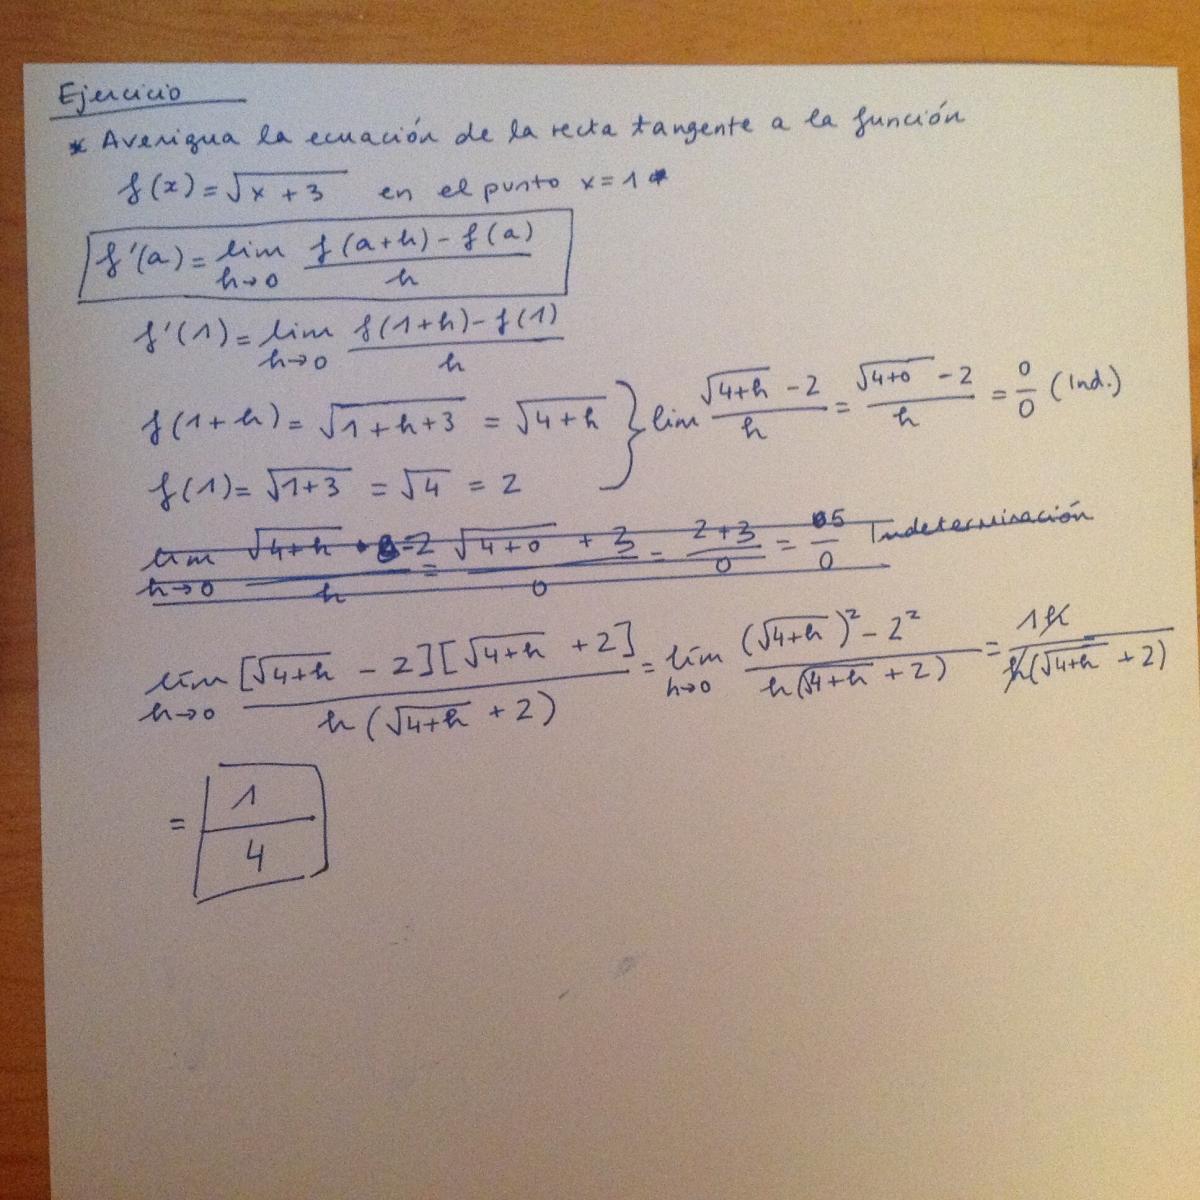 Ejercicio
* Averigua la ecuación de la recta tangente a la función
f(x) = √(x + 3) en el punto x = 1 *
f'(a) = lim h→0 (f(a+h) - f(a)) / h
f'(1) = lim h→0 (f(1+h) - f(1)) / h
f(1+h) = √(1+h+3) = √(4+h) } lim (√(4+h) - 2) / h = (√(4+0) - 2) / h = 0/0 (Ind.)
f(1) = √(1+3) = √4 = 2
lim h→0 (√(4+h) - 2) / h = (√(4+0) + 3) / 0 = (2+3) / 0 = 5/0 Indeterminación
lím h→0 [√(4+h) - 2][√(4+h) + 2] / h(√(4+h) + 2) = lím h→0 ((√(4+h))² - 2²) / h(√(4+h) + 2) = 1h / h(√(4+h) + 2)
= 1/4